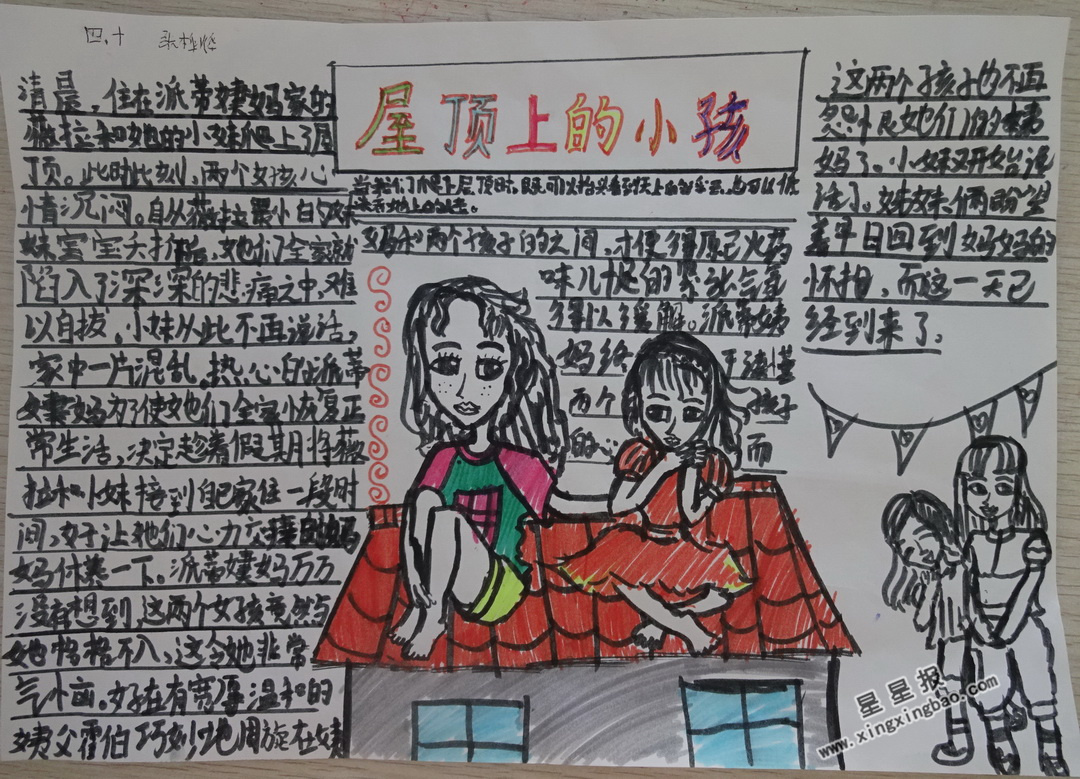 四、十
屋顶上的小孩
当我们爬上屋顶时,既可以抬头看到天上的
清晨,住在派蒂姨妈家的
薇拉和她的小妹爬上了屋
顶。此时此刻,两个女孩心
情沉闷。自从薇拉最小的妹
妹宝宝夭折后,她们全家就
陷入了深深的悲痛之中,难
以自拔,小妹从此不再说话,
家中一片混乱。热心的派蒂
姨妈为了使她们全家恢复正
常生活,决定趁着假期将薇
拉和小妹接到自己家住一段时
间,好让她们心力交瘁的妈
妈休养一下。派蒂姨妈万万
没有想到这两个女孩竟然与
她格格不入,这令她非常
气恼。好在有宽厚温和的
姨父霍伯巧妙地周旋在姨
妈和两个孩子的之间,才使得原已火药
味儿十足的紧张气氛
得以缓解。派蒂姨
妈终于读懂
两个孩子
的心 而
这两个孩子也不再
怨恨她们的姨
妈了。小妹又开始说
话了。姊妹俩盼望
着早日回到妈妈的
怀抱,而这一天已
经到来了。
星星报
www.xingxingbao.com